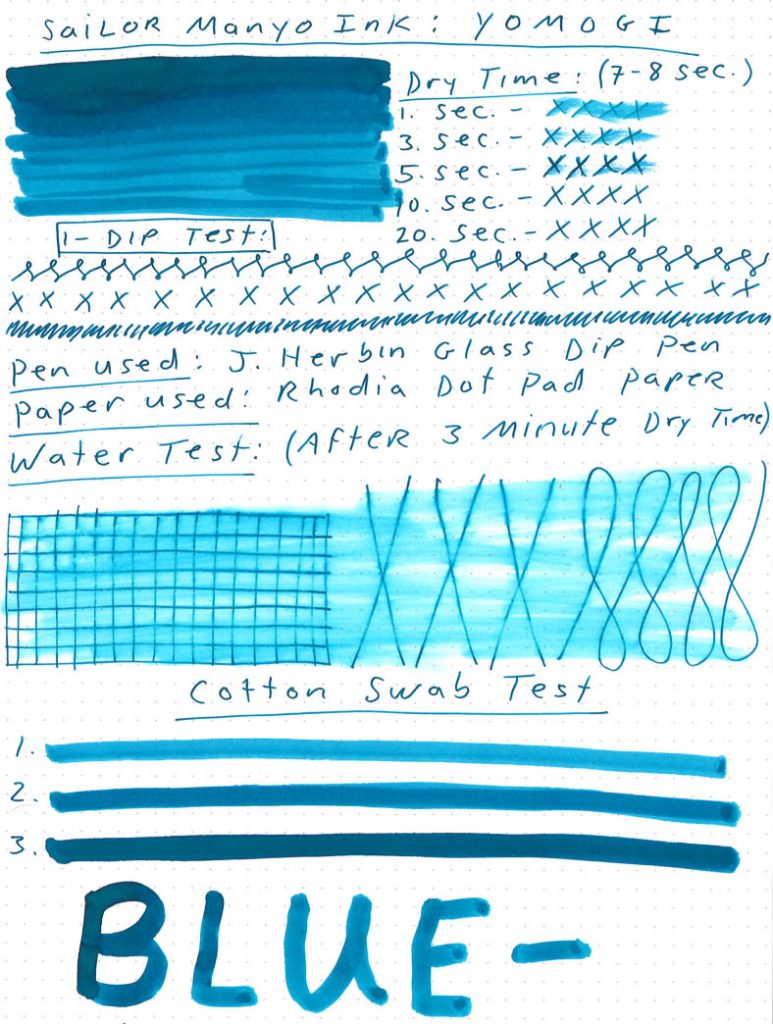 SaiLOR Manyo Ink: YOMOGI
Dry Time: (7-8 sec.)
1. sec. - XXXX
3. sec. - XXXX
5. sec. - XXXX
10. sec. - XXXX
20. sec. - XXXX
1- DIP Test:
X X X X X X X X X X X X X X X X X X X
Pen used: J. Herbin Glass Dip Pen
Paper used: Rhodia Dot Pad Paper
Water Test: (After 3 Minute Dry Time)
Cotton Swab Test
1.
2.
3.
BLUE-